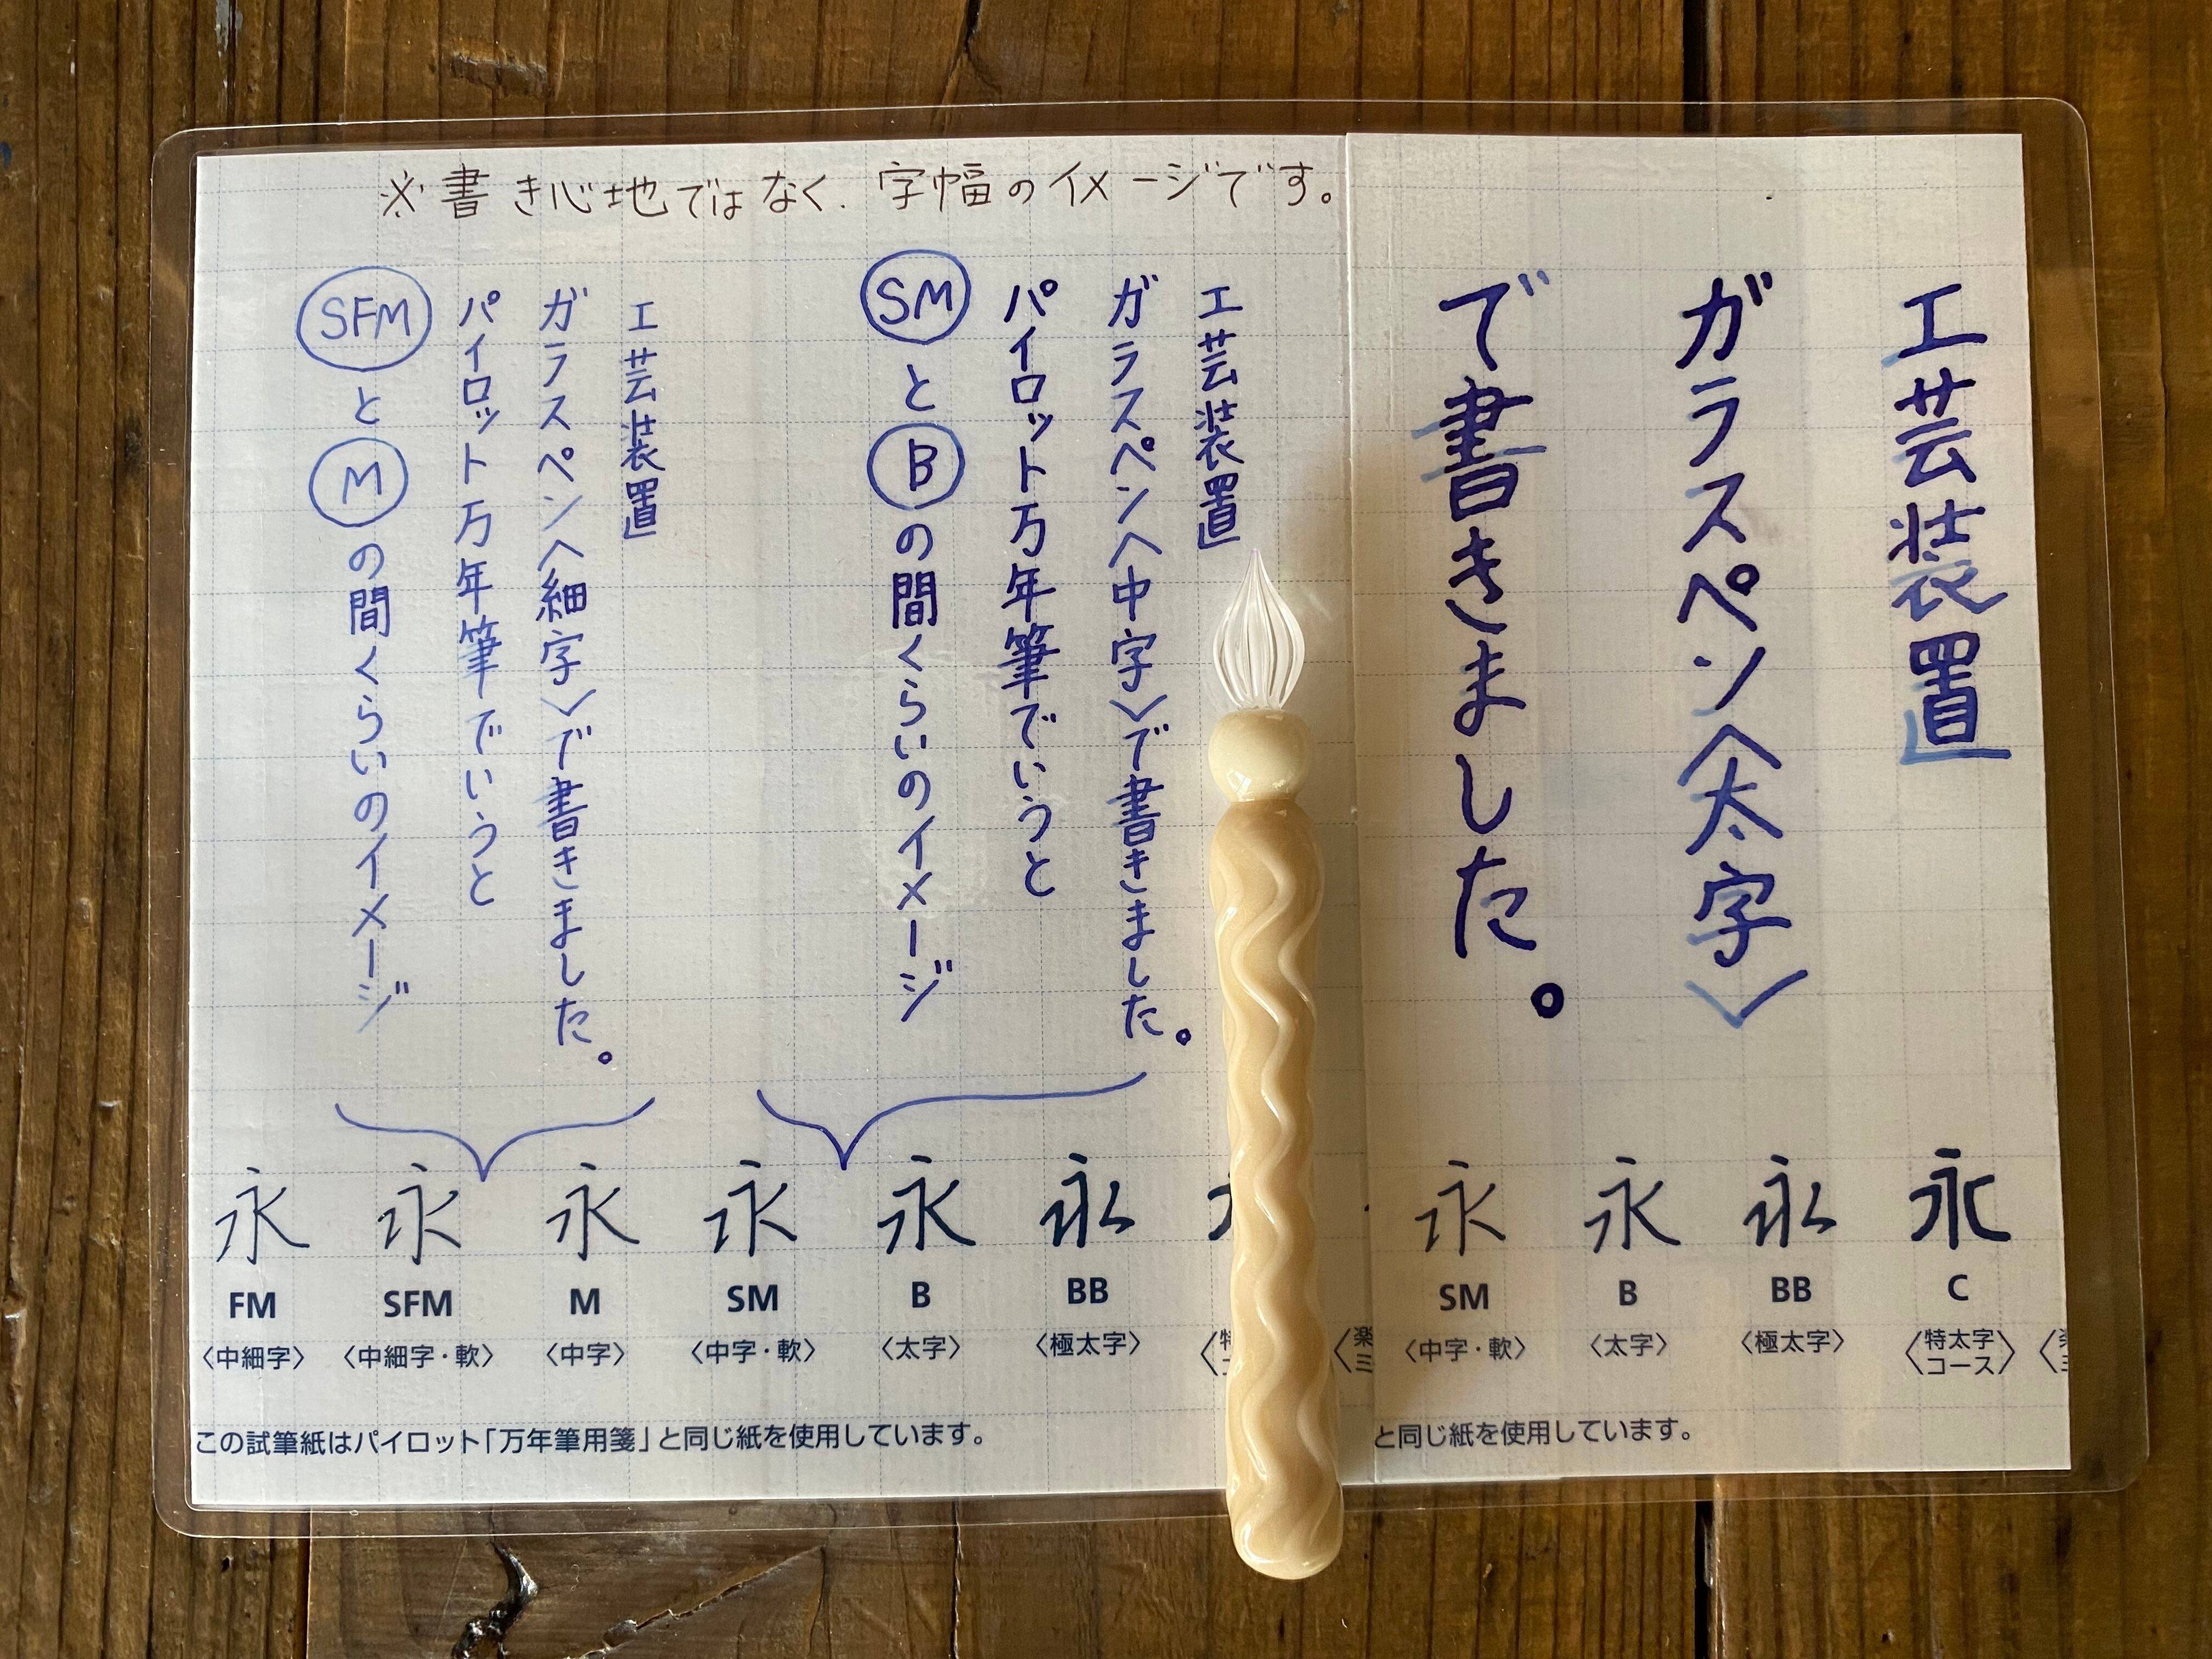 ※書き心地ではなく、字幅のイメージです。
工芸装置
ガラスペン〈太字〉
で書きました。
工芸装置
ガラスペン〈中字〉で書きました。
パイロット万年筆でいうと
SMとBの間くらいのイメージ
工芸装置
ガラスペン〈細字〉で書きました。
パイロット万年筆でいうと
SFMとMの間くらいのイメージ
永 永 永 永 永 永
FM SFM M SM B BB
〈中細字〉 〈中細字・軟〉 〈中字〉 〈中字・軟〉 〈太字〉 〈極太字〉
この試筆紙はパイロット「万年筆用箋」と同じ紙を使用しています。
永 永 永 永
SM B BB C
〈中字・軟〉 〈太字〉 〈極太字〉 〈特太字コース〉
と同じ紙を使用しています。